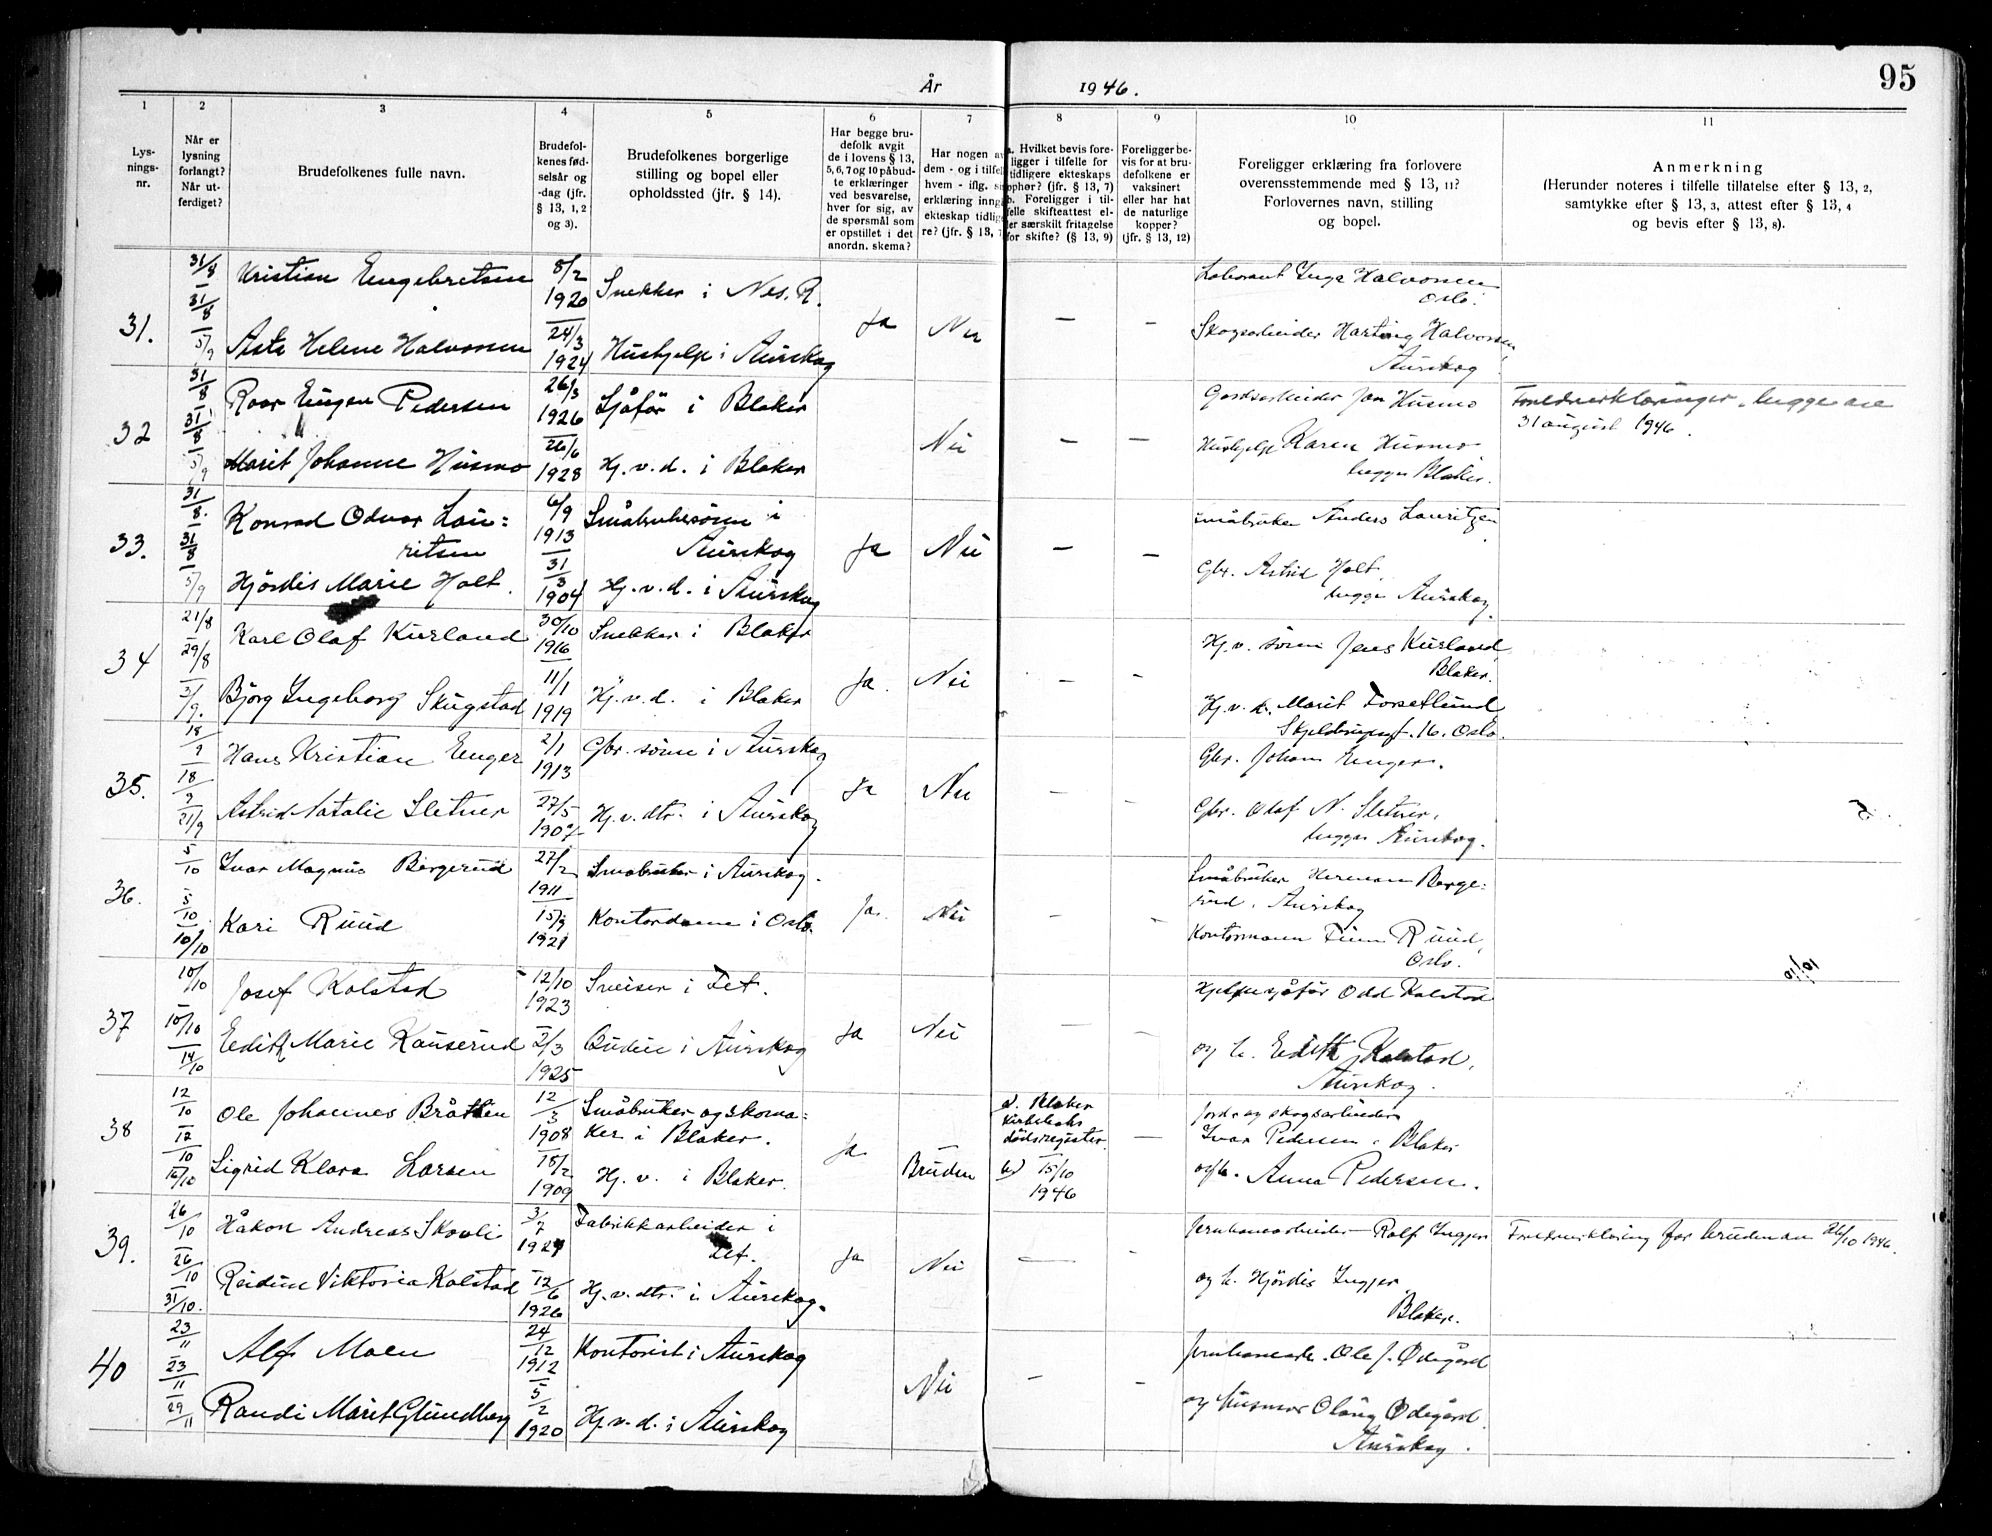 95
År 1946.
1 2 3 4 5 6 7 8 9 10 11
Lys-
nings-
nr.
Når er
lysning
forlangt?
Når ut-
ferdiget?
Brudefolkenes fulle navn.
Brudefol-
kenes fød-
selsår og
-dag (jfr.
§ 13, 1, 2
og 3).
Brudefolkenes borgerlige
stilling og bopel eller
opholdssted (jfr. § 14).
Har begge bru-
defolk avgit
de i lovens § 13,
5, 6, 7 og 10 påbud-
te erklæringer
ved besvarelse,
hver for sig, av
de spørsmål som
er opstillet i det
anordn. skema?
Har nogen av
dem - og i tilfelle
hvem - iflg.
erklæring inngå
ekteskap tidlige
re? (jfr. § 13,
a. Hvilket bevis fore-
ligger i tilfelle for
tidligere ekteskaps
ophør? (jfr. § 13, 7)
b. Foreligger i til-
felle skifteattest el-
ler særskilt fritagelse
for skifte? (§ 13, 9)
Foreligger be-
vis for at bru-
defolkene er
vaksinert
eller har hat
de naturlige
kopper?
(jfr. § 13, 12)
Foreligger erklæring fra forlovere
overensstemmende med § 13, 11?
Forlovernes navn, stilling
og bopel.
Anmerkning
(Herunder noteres i tilfelle tillatelse efter § 13, 2,
samtykke efter § 13, 3, attest efter § 13, 4
og bevis efter § 13, 8).
31.
31/8
31/8
5/9
Kristian Engebretsen
8/2 1920
Snekker i Nes. R.
Asta Helene Halvorsen
24/3 1924
Hushjelp i Aurskog
Ja Nei – –
Laborant Inga Halvorsen
Oslo.
Skogsarbeider Harting Halvorsen,
Aurskog
32
31/8
31/8
5/9
Roar Eugen Pedersen
26/3 1926
Sjåför i Blaker
Marit Johanne Husmo
26/6 1928
Hj.v.d. i Blaker
Nei – –
Gardsarbeider Jon Husmo
Hushjelp Karen Husmo
begge Blaker.
Foreldreerklæringer, begge av
31 august 1946.
33.
31/8.
31/8
5/9
Konrad Odvar Lau=
ritsen
6/9 1913
Småbrukersönn i
Aurskog
Hjördis Marie Holt.
31/3 1904
Hj.v.d. i Aurskog
Ja Nei – –
småbruker Anders Lauritzen
Gbr. Astrid Holt,
begge Aurskog
34
21/8
29/8
3/9.
Karl Olaf Kurland
30/10 1916
Snekker i Blaker
Björg Ingeborg Skugstad
11/1 1919
Hj.v.d. i Blaker
Ja. Nei – –
Hj.v. sönn Jens Kurland
Blaker.
Hj.v.d. Marit Forsetlund
16. Oslo.
35.
18/9
18/9
21/9
Hans Kristian Enger
2/1 1913
Gbr. sönn i Aurskog
Astrid Natalie Sletner
27/5 1907
Hj.v.dtr. i Aurskog
Ja Nei – –
Gbr. Johan Enger.
Gbr. Olaf N. Sletner,
begge Aurskog.
36.
5/10
5/10
10/10
Ivar Magnus Bergerud
27/2 1911
Småbruker i Aurskog.
Kari Ruud
15/9 1921
Kontordame i Oslo.
Ja. Nei – –
Småbruker Herman Berge=
rud, Aurskog
Kontormann Finn Ruud,
Oslo.
37
10/10
10/10
14/10
Josef Kolstad
12/10 1923
Sveiser i Fet.
Edith Marie Kauserud
2/3 1925
Budeie i Aurskog
Ja Nei – –
Hjelpesjåför Odd Kolstad
og h. Edith Kolstad,
Aurskog.
38
12/10
12/10
16/10
Ole Johannes Bråten
12/3 1908
Småbruker og skoma=
ker i Blaker.
Sigrid Klara Larsen
15/2 1909
Hj.v. i Blaker.
Ja Bruden
a. Blaker
kirkeboks
dödsregister
b) 15/10
1946
–
Jord- og skogsarbeider
Ivar Pedersen, Blaker
og h. Anna Pedersen.
39.
26/10
26/10
31/10.
Håkon Andreas Skovli
3/7 1921
Fabrikkarbeider i
Fet.
Reidun Viktoria Kolstad
12/6 1926
Hj.v.dtr. i Aurskog.
Ja Nei – –
Jernbanearbeider Rolf Ingjer
og h. Hjördis Ingjer,
Blaker.
Foreldreerklæring for bruden av 26/10 1946.
40
23/11
23/11
29/11
Alf Moen
24/12 1912
Kontorist i Aurskog
Randi Marit Glundberg
5/2 1920
Hj.v.d. i Aurskog
Nei – –
Jernbanearb. Ole J. Ödegård
og husmor Olaug Ödegård
Aurskog.